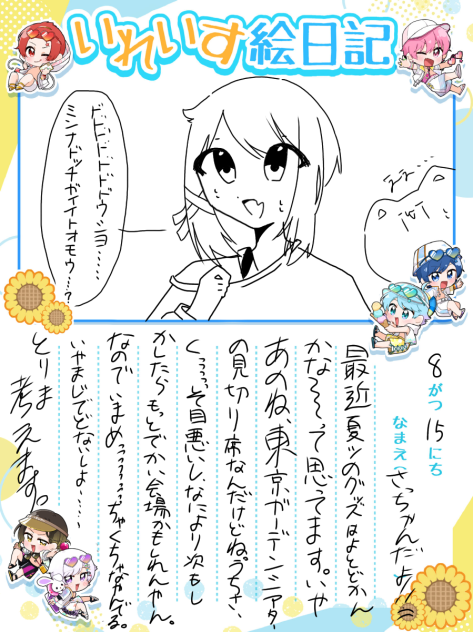 いれいす絵日記
ドドドドドドドウショ……
ミンナドッチガイイトオモウ……?
8がつ15にち
なまえ:さっちゃんだよ!!
最近夏ツのグッズはよとどかん
かな〜〜って思ってます。いや
あのね、東京ガーデンシアター
の見切り席なんだけどね。うちさ、
くっっっっそ目悪いし、なにより次もし
かしたらもっとでかい会場かもしれんやん。
なのでいまめっっっっっっちゃくちゃなやんでる。
いやまじでどないしよ……
とりま
考えます。